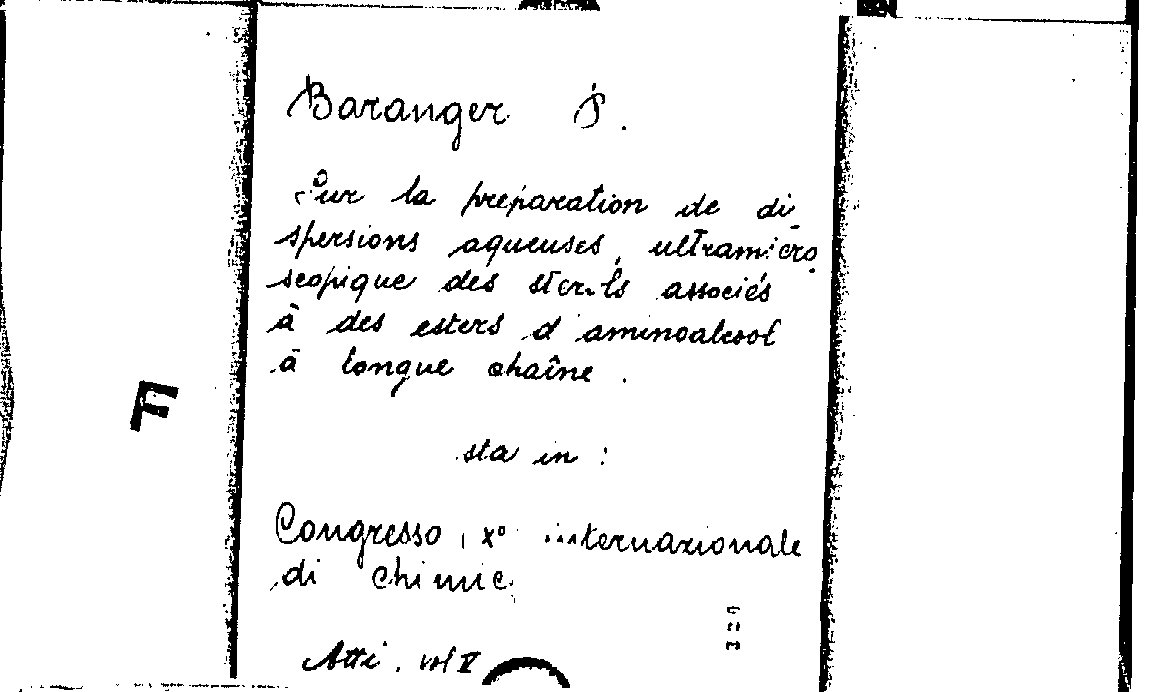 Baranger P.
Sur la préparation de di
spersions aqueuses, ultramicro
scopique des stérols associés
à des esters d'aminoalcool
à longue chaîne.
F
sta in:
Congresso X° internazionale
di chimic
Atti. vol V